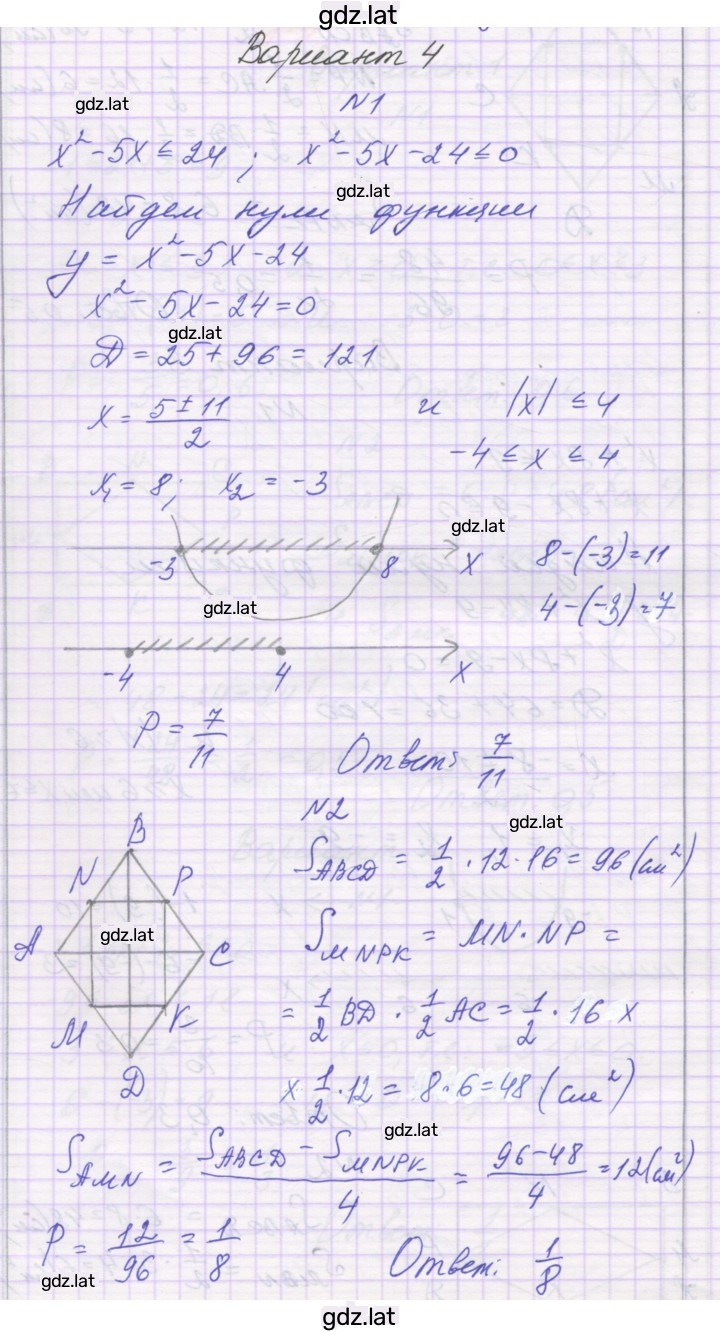 gdz.lat
Вариант 4
gdz.lat
N1
x² - 5x ≤ 24 ; x² - 5x - 24 ≤ 0
gdz.lat
Найдем нули функции
y = x² - 5x - 24
x² - 5x - 24 = 0
gdz.lat
Д = 25 + 96 = 121
x = (5 ± 11)/2 и |x| ≤ 4
-4 ≤ x ≤ 4
x₁ = 8; x₂ = -3
gdz.lat
-3 8 x 8 - (-3) = 11
gdz.lat
4 - (-3) = 7
-4 4 x
P = 7/11
Ответ: 7/11
N2
gdz.lat
B
N P
S ABCD = 1/2 · 12 · 16 = 96 (см²)
gdz.lat
A C
S MNPK = MN · NP =
M K
= 1/2 BD · 1/2 AC = 1/2 · 16 x
D
x 1/2 · 12 = 8 · 6 = 48 (см²)
gdz.lat
S AMN = (S ABCD - S MNPK)/4 = (96 - 48)/4 = 12 (см²)
P = 12/96 = 1/8
gdz.lat
Ответ: 1/8
gdz.lat